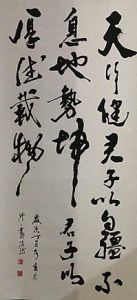 天行健君子以自疆不
息地勢坤君子以
厚德載物